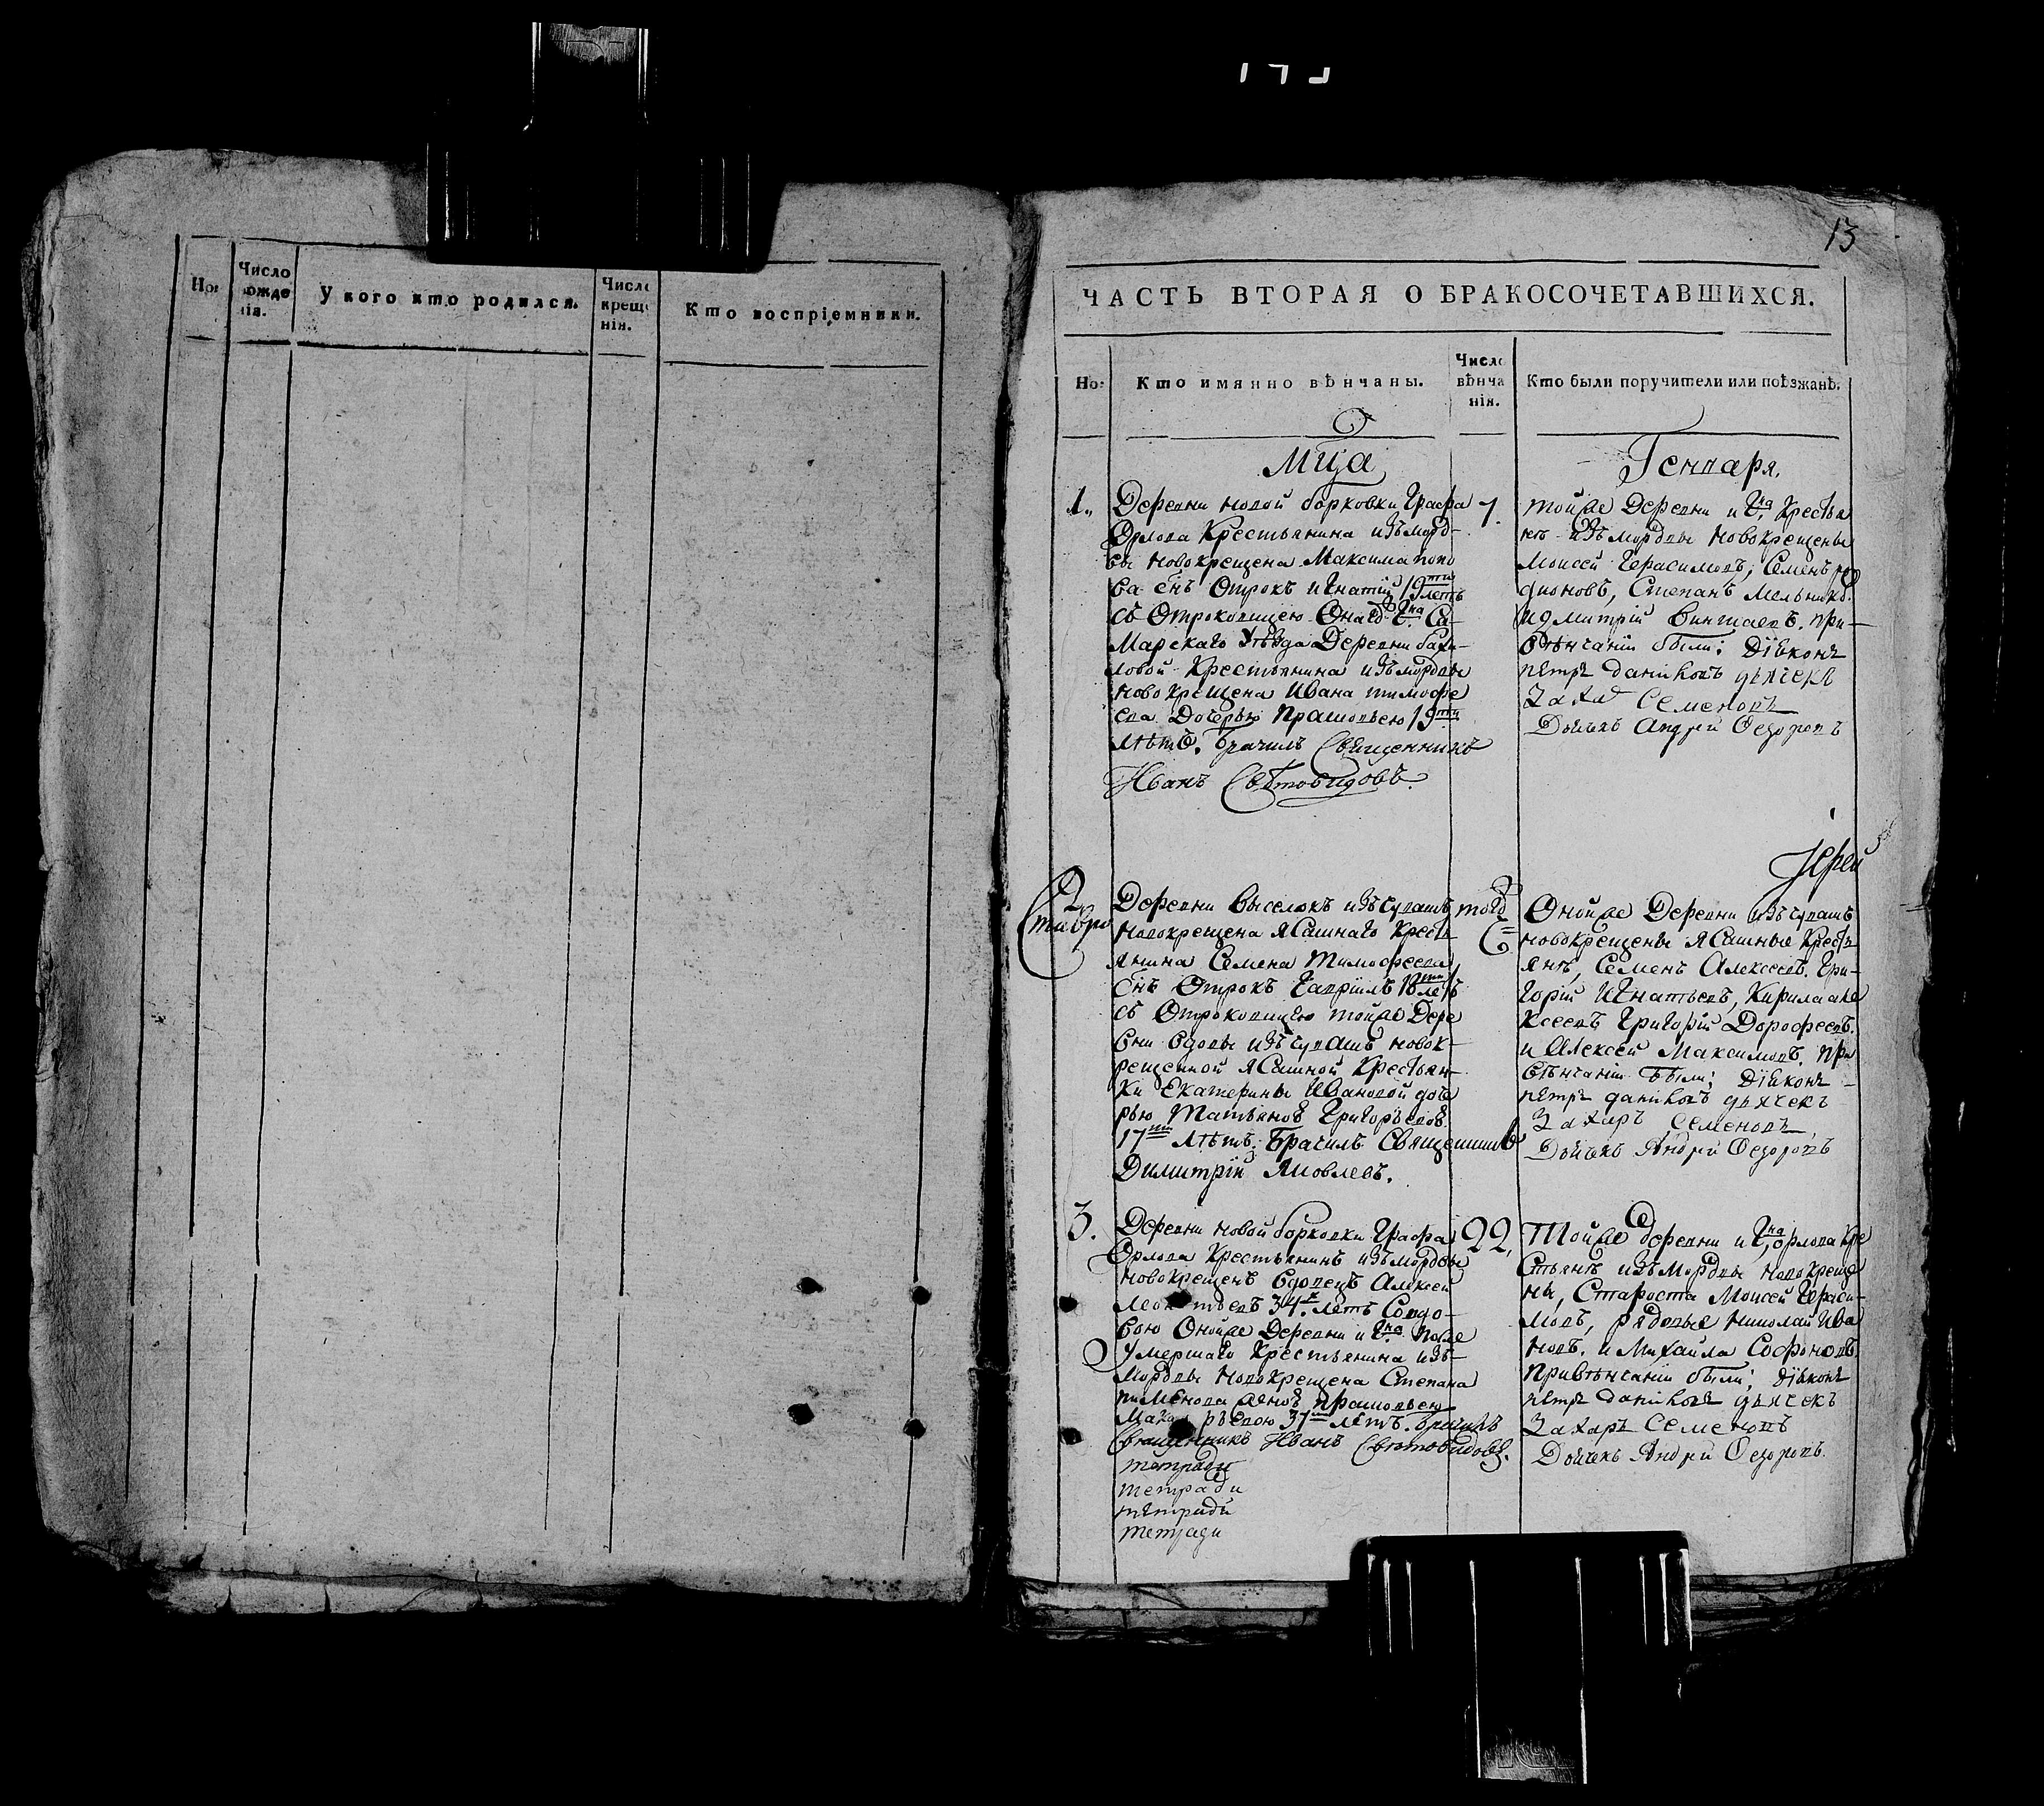 Но:
Число
рожде
нія.
У кого кто родился.
Число
креще
нія.
Кто воспріемники.
13
ЧАСТЬ ВТОРАЯ О БРАКОСОЧЕТАВШИХСЯ.
Но:
Кто имянно вѣнчаны.
Число
вѣнча
нія.
Кто были поручители или поѣзжанѣ.
Мца
Генваря.
1.
Деревни новой борковки Графа
Орлова Крестьянина изъ морд-
вы новокрещена Максима попо
ва снъ Отрокъ Игнатій 19ти летъ
съ Отроковицею Онаго Са-
марскаго Уѣзда Деревни
ловой Крестьянина изъ мордвы
новокрещена Ивана тимофе
ева Дочерью Прасковьею 19ти
лѣтъ. Брачилъ Священникъ
Иванъ Световидовъ.
7.
Тойже Деревни и Крестья
нѣ изъ мордвы новокрещены
Моисей Герасимовъ, Семенъ ро
дионовъ, Степанъ Мельнико.
и дмитрій при-
вѣнчаніи были: Діакон
петръ даниловъ дьячекъ
Семеновъ
Андрей Федоровъ
Іерей
2
Ставро
Деревни Выселокъ изъ чувашъ
новокрещена Ясашнаго Кресть
янина Семена Тимофеева,
снъ Отрокъ Гавріилъ 18ти летъ
съ Отроковицею тойже Дере
вни вдовы изъ чувашъ новок-
рещенной Ясашной Крестьян-
ки Екатерины Ивановой доче
рью Татьяною Григорьевою
17ти лѣтъ. Брачилъ Священникъ
Димитрій Яковлевъ.
Онойже Деревни изъ чувашъ
новокрещены Ясашныя Кресть
янѣ, Семенъ Алексеевъ. Гри-
горій Игнатьевъ, Кирила але
ксеевъ Григорій Дорофеевъ.
и Алексей Максимовъ. При
вѣнчаніи были: Діакон
петръ даниловъ дьячекъ
Захаръ Семеновъ
Андрей Федоровъ
3.
Деревни новой борковки Графа
Орлова Крестьянинъ изъ мордвы
новокрещенъ вдовецъ Алексей
Леонтьевъ 34х летъ Совдо-
вою Онойже Деревни и после
умершаго Крестьянина изъ
мордвы новокрещена Степана
пименова женою Прасковьею
37ми лѣтъ. Брачилъ
Священникъ Иванъ Световидовъ.
тетради
тетради
тетради
тетради
22.
Тойже деревни и орлова Кре
стьянѣ изъ Мордвы новокреще
ны, Староста Моисей Гераси-
мовъ, рядовые николай Ива
новъ. и Михайла Софоновъ.
При вѣнчаніи были: діакон
петръ даниловъ дьячекъ
Захаръ Семеновъ
Андрей Федоровъ.